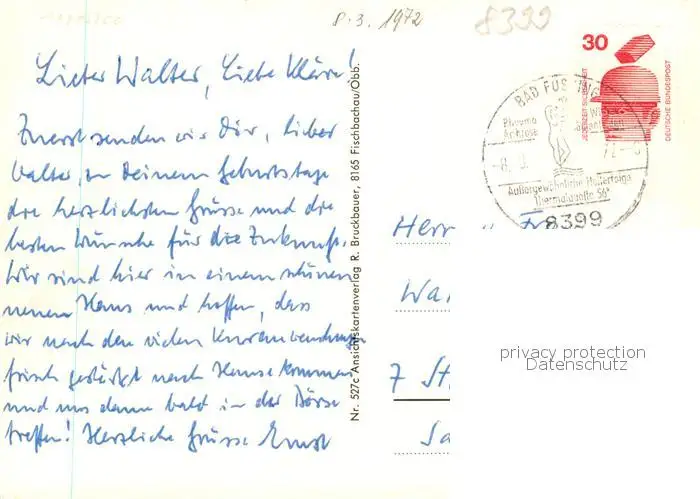 8.3.1972
8399
30
JEDERZEIT SICHERHEIT
DEUTSCHE BUNDESPOST
BAD FÜSSING
Rheuma
Arthrose
-8.3.
Außergewöhnliche Heilerfolge
Thermalquelle 56°
8399
Lieber Walter, liebe Kläre!
Zuerst senden wir Dir, lieber
Walter, zu Deinem Geburtstage
die herzlichsten Grüsse und die
besten Wünsche für die Zukunft.
Wir sind hier in einem schönen
neuen Haus und hoffen, dass
wir nach den vielen Kuranwendungen
frisch gestärkt nach Hause kommen
und uns dann bald in der Börse
treffen! Herzliche Grüsse Ernst
Nr. 527c Ansichtskartenverlag R. Bruckbauer, 8165 Fischbachau/Obb.
Herr
Wa
7 St
privacy protection
Datenschutz